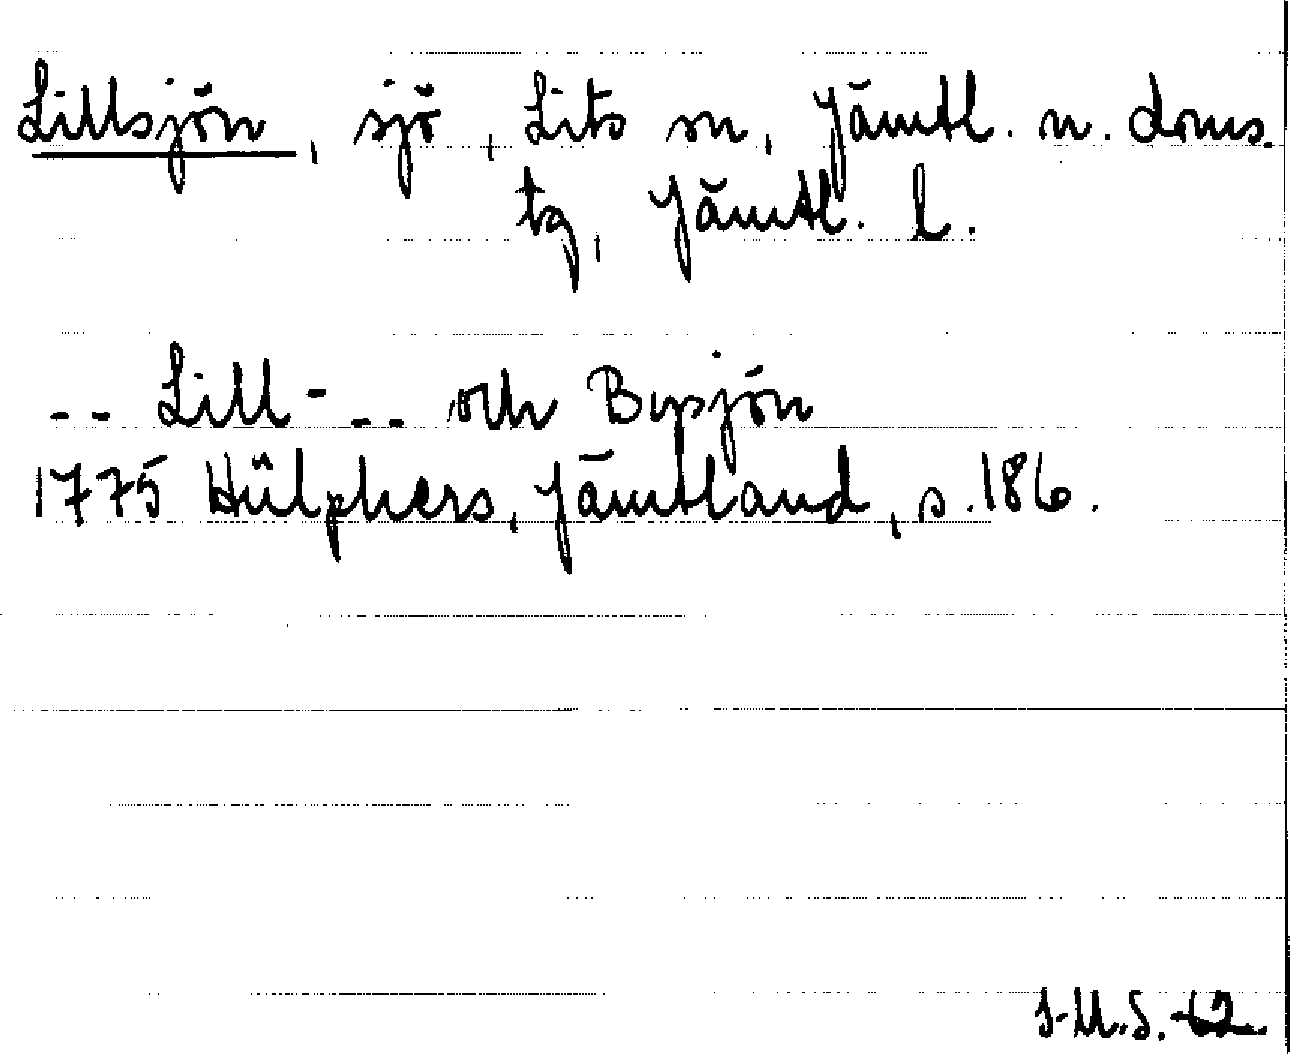 Lillsjön, sjö, Lits sn, Jämtl. n. doms.
tg, Jämtl. l.
-- Lill- -- och Bysjön
1775 Hülphers, Jämtland, s. 186.
I-M.S.-62